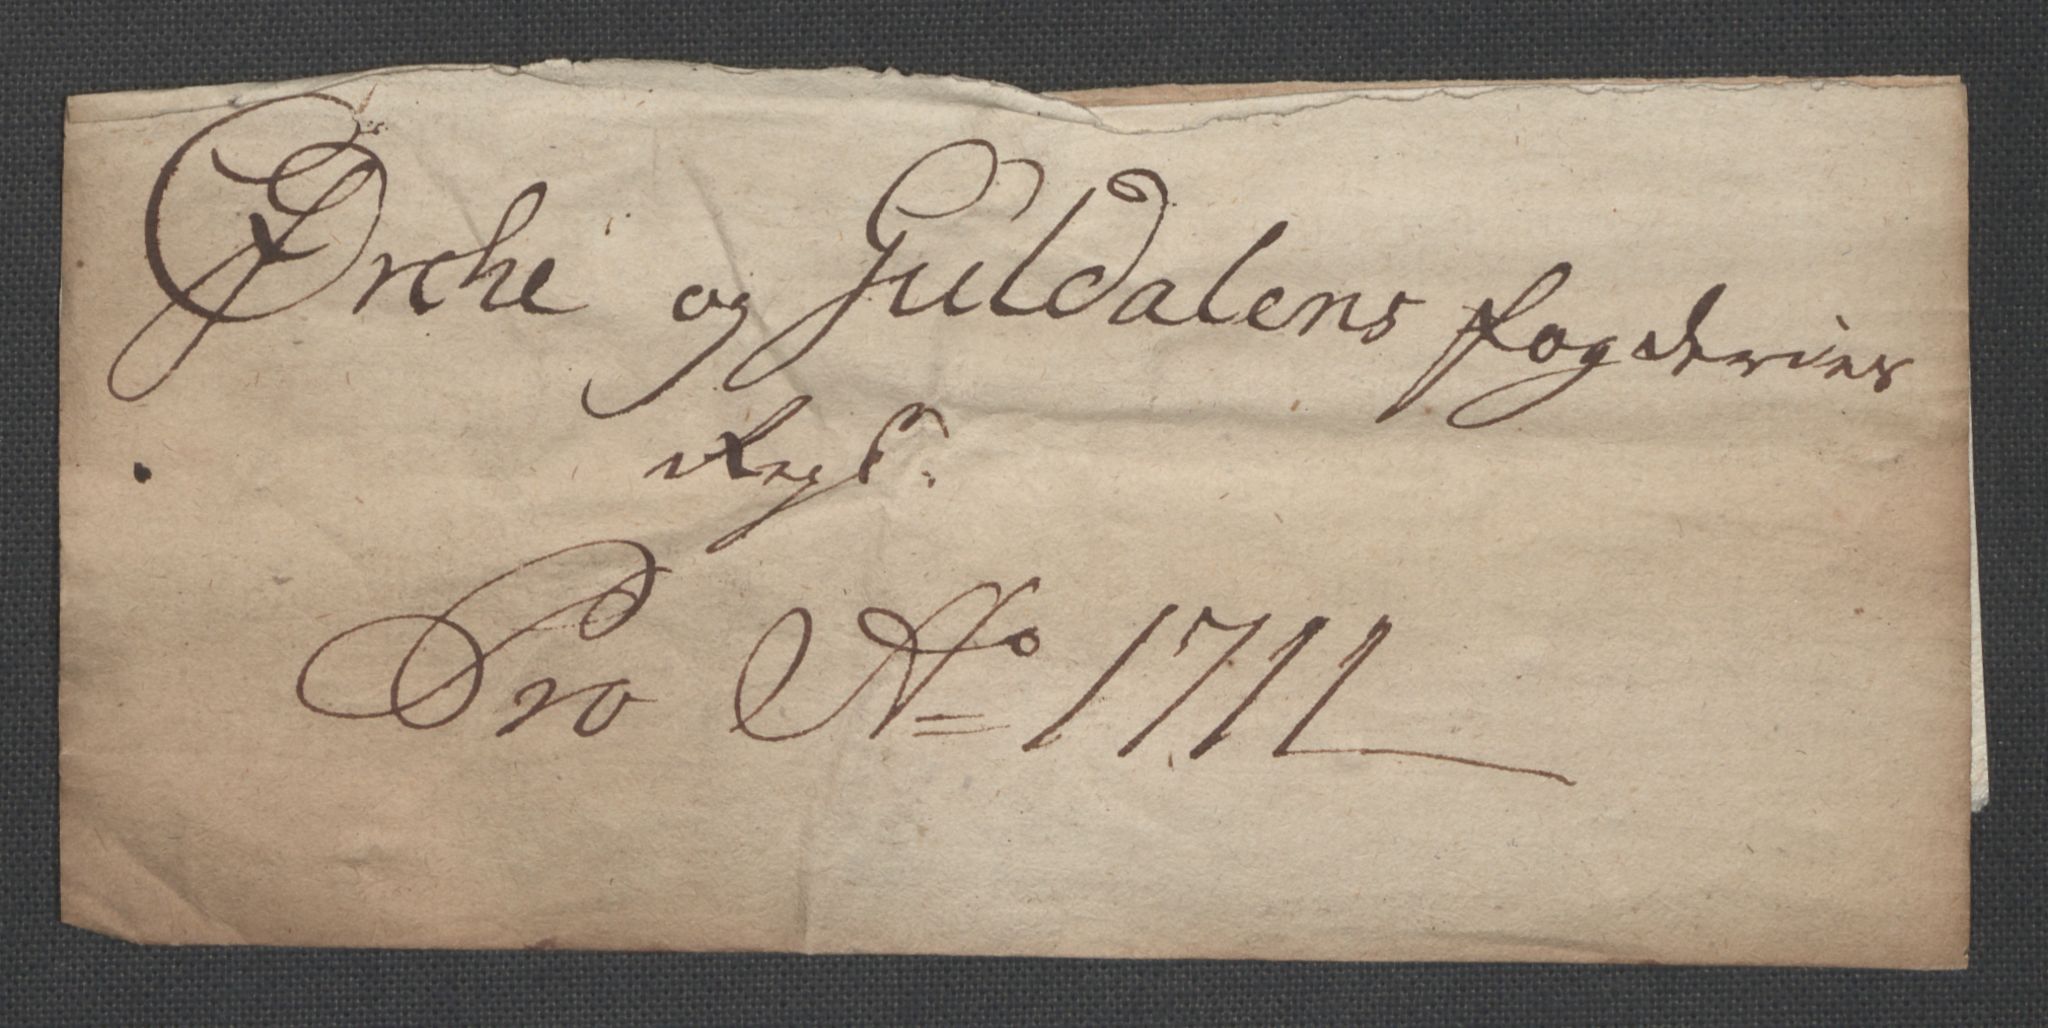 Ørche og Guldalens fogderies
Regs.
Pro Ao 1711